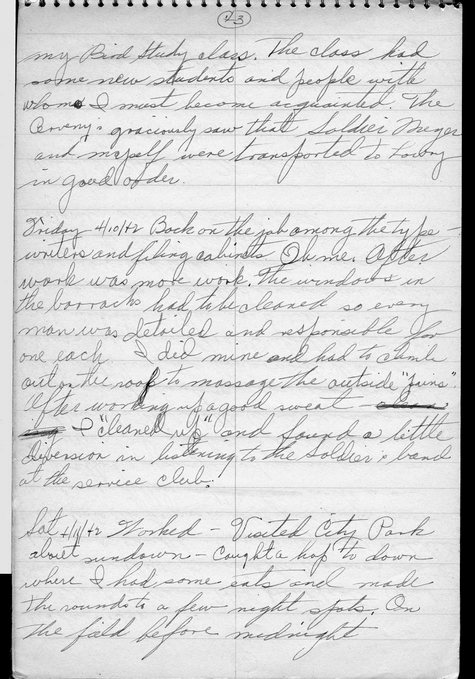 43
my Bird Study class. The class had
some new students and people with
whom I must become acquainted. The
graciously saw that Soldier Meyer
and myself were transported to Lowry
in good order.
Friday 4/10/42 Back on the job among the type-
writers and filing cabinets Oh me. After
work was more work. The windows in
the barracks had to be cleaned so every
man was detailed and responsible for
one each. I did mine and had to climb
out on the roof to massage the outside "puns".
After working up a good sweat -
I "cleaned up" and found a little
diversion in listening to the Soldier's band
at the service club.
Sat 4/11/42 Worked - Visited City Park
about sundown - Caught a hop to down
where I had some eats and made
the rounds to a few night spots. On
the field before midnight